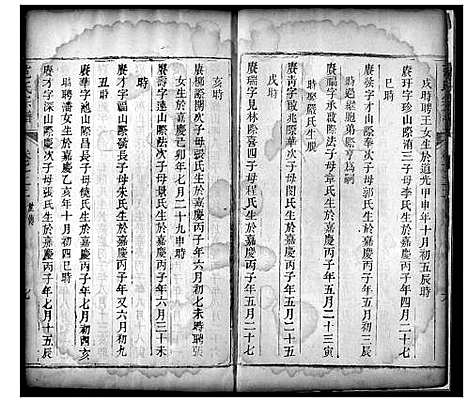 戌時聘王女生於道光甲申年十月初五辰時
賡玕字珍山際淯三子母李氏生於嘉慶丙子年四月二十七
巳時
賡發字才山際奉次子母郭氏生於嘉慶丙子年五月初三辰
時過繼胞弟際亨爲嗣
賡福字承啟際子母章氏生於嘉慶丙子年五月二十三寅
時聚嚴氏生歿
賡青字啟兆際華次子母閔氏生於嘉慶丙子年五月二十五
戌時
賡瑞字見林際喜四子母程氏生於嘉慶丙子年五月二十七
亥時
賡椰際開次子母張氏生於嘉慶丙子年六月初七未時聘張
女生於嘉慶己卯年七月二十九申時
賡壽字遠山際法次子母景氏生於嘉慶丙子年六月三十未
時
賡才字福山際榮長子母朱氏生於嘉慶丙子年又六月初九
丑時
賡華字連山際昌長子母倪氏生於嘉慶丙子年七月初四亥
時聘潘女生於嘉慶乙亥年十月初四巳時
賡才字深山際慶次子母張氏生於嘉慶丙子年七月十五辰